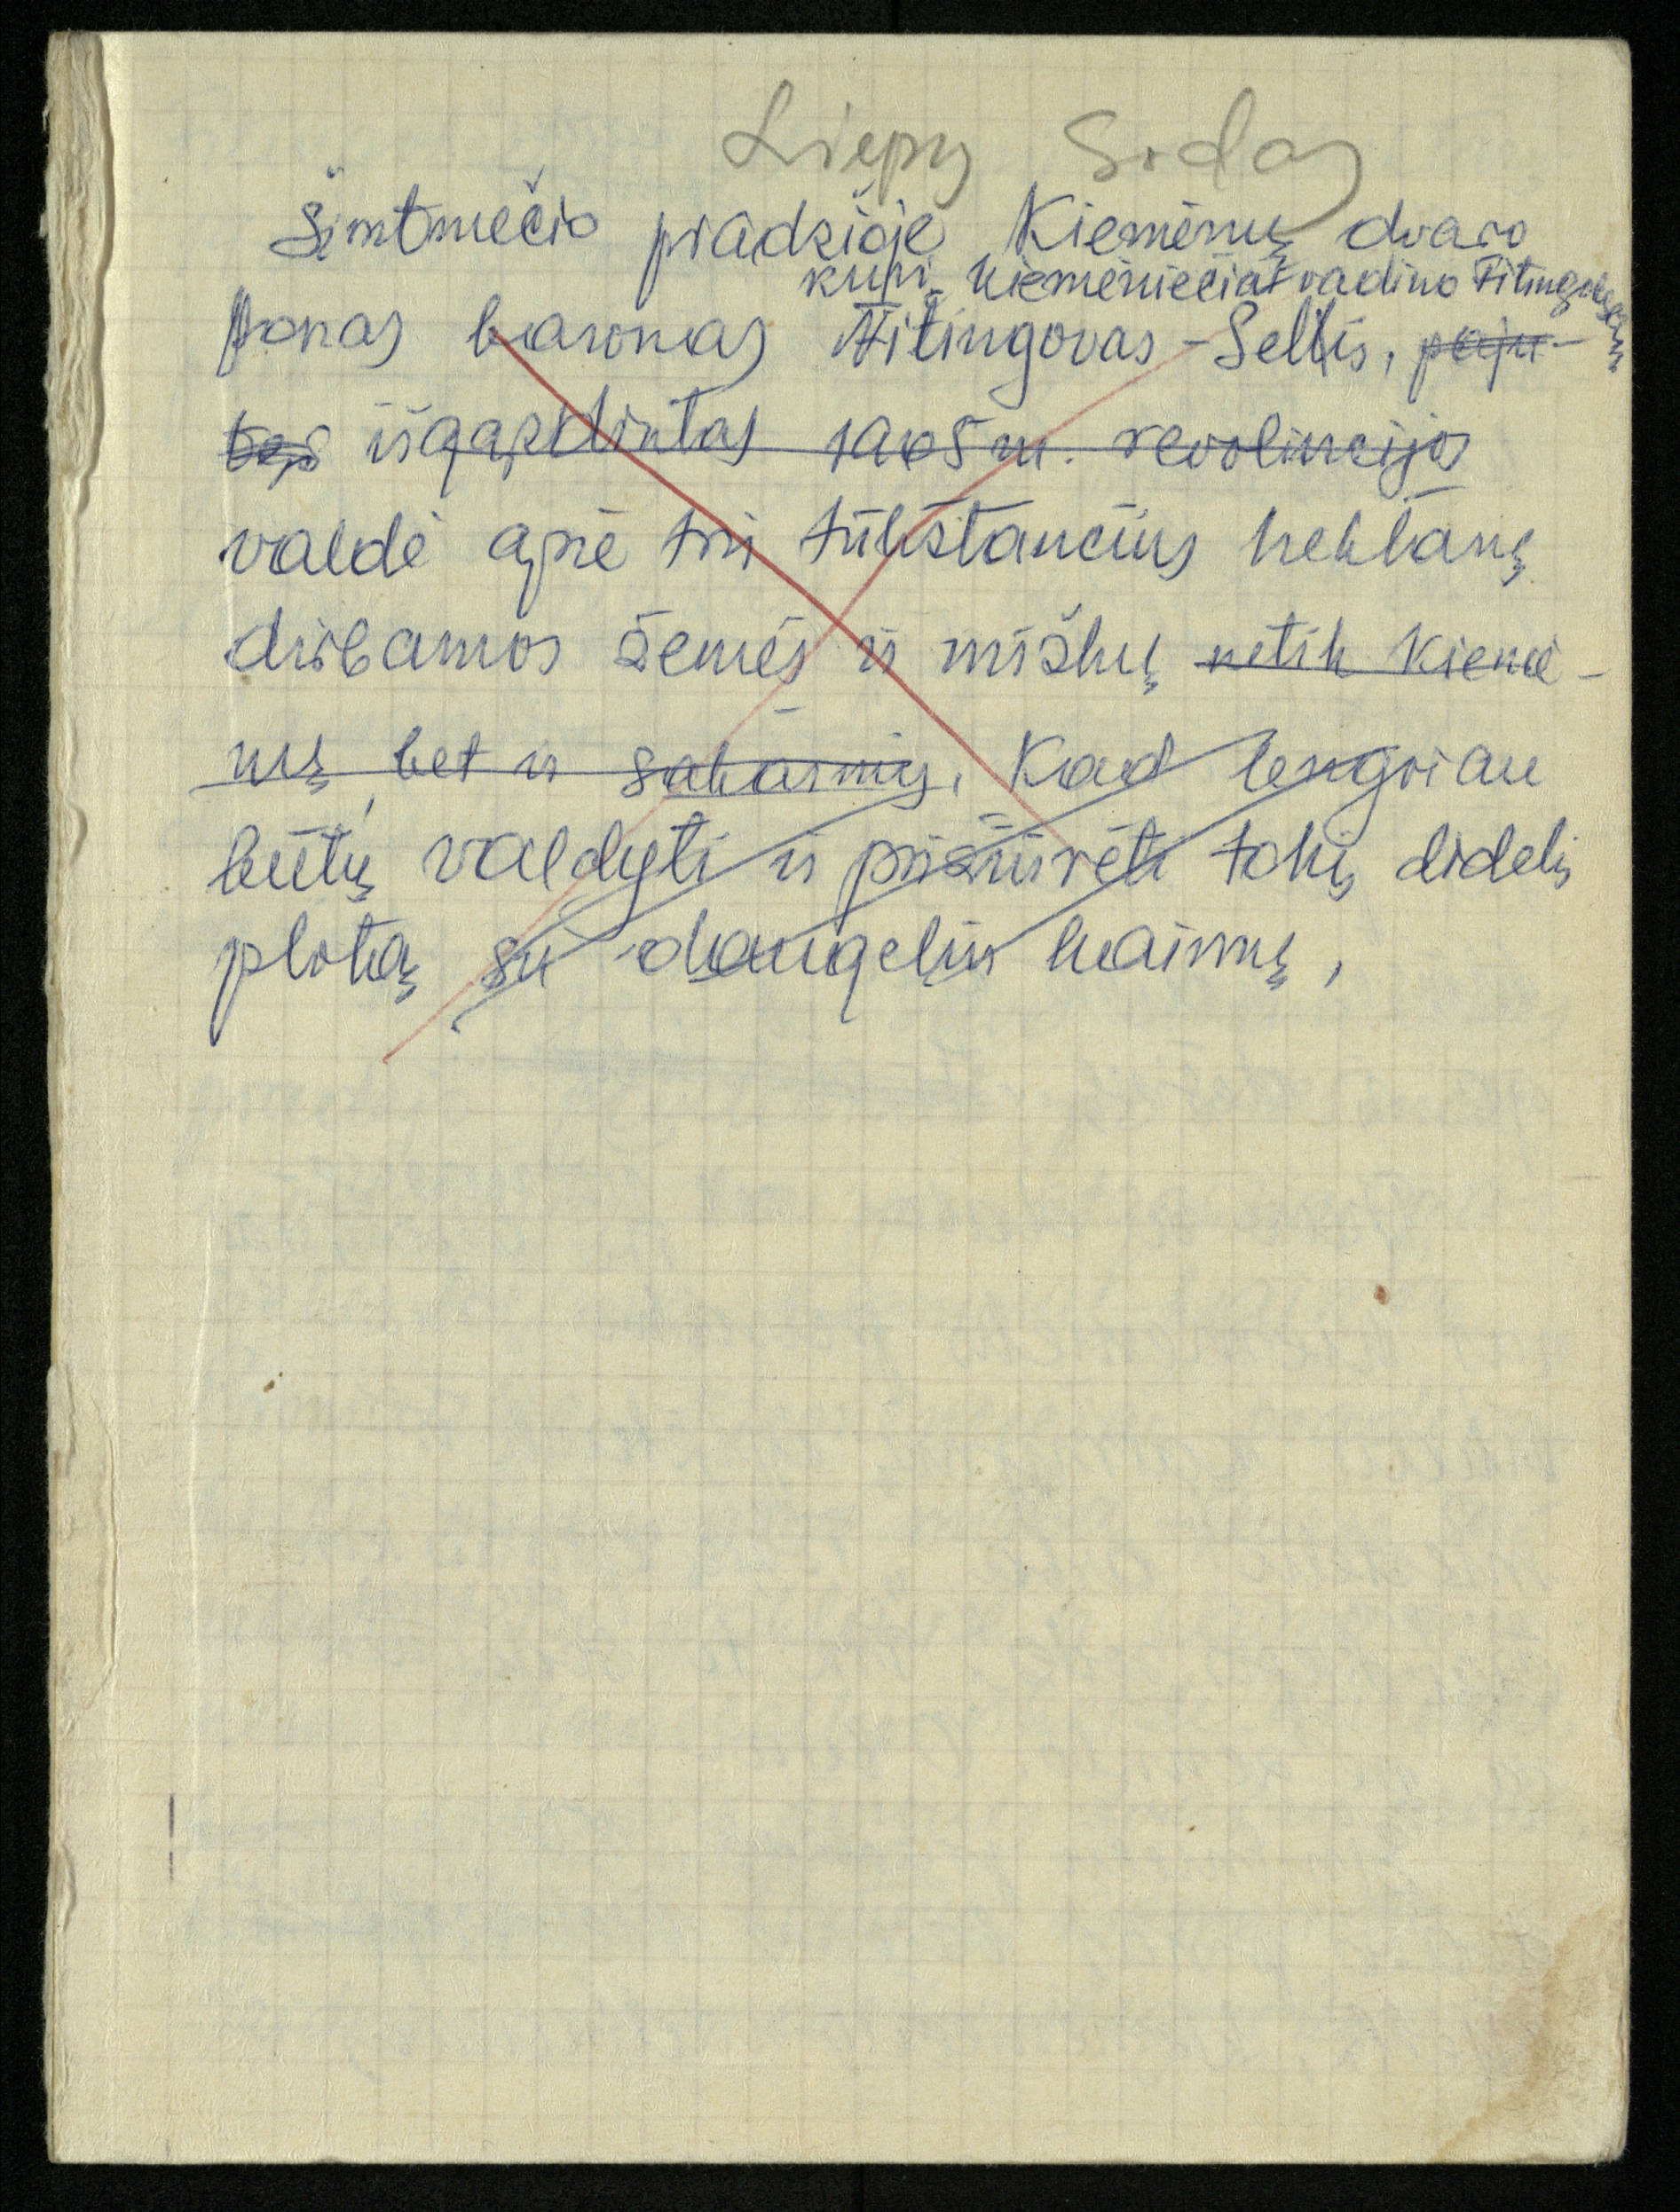 Liepų Sodas
Šimtmečio pradžioje Kiemėnų dvaro
kurį kiemėniečiai vadino Fitingofu
ponas baronas Fitingovas-Sellis, paju-
išgąsdintas 1905 m. revoliucijos
valdė apie tris tūkstančius hektarų
dirbamos žemės ir miškų netik Kiemė-
nų, bet ir . Kad lengviau
būtų valdyti ir prižiūrėti tokį didelį
plotą su daugeliu kaimų,